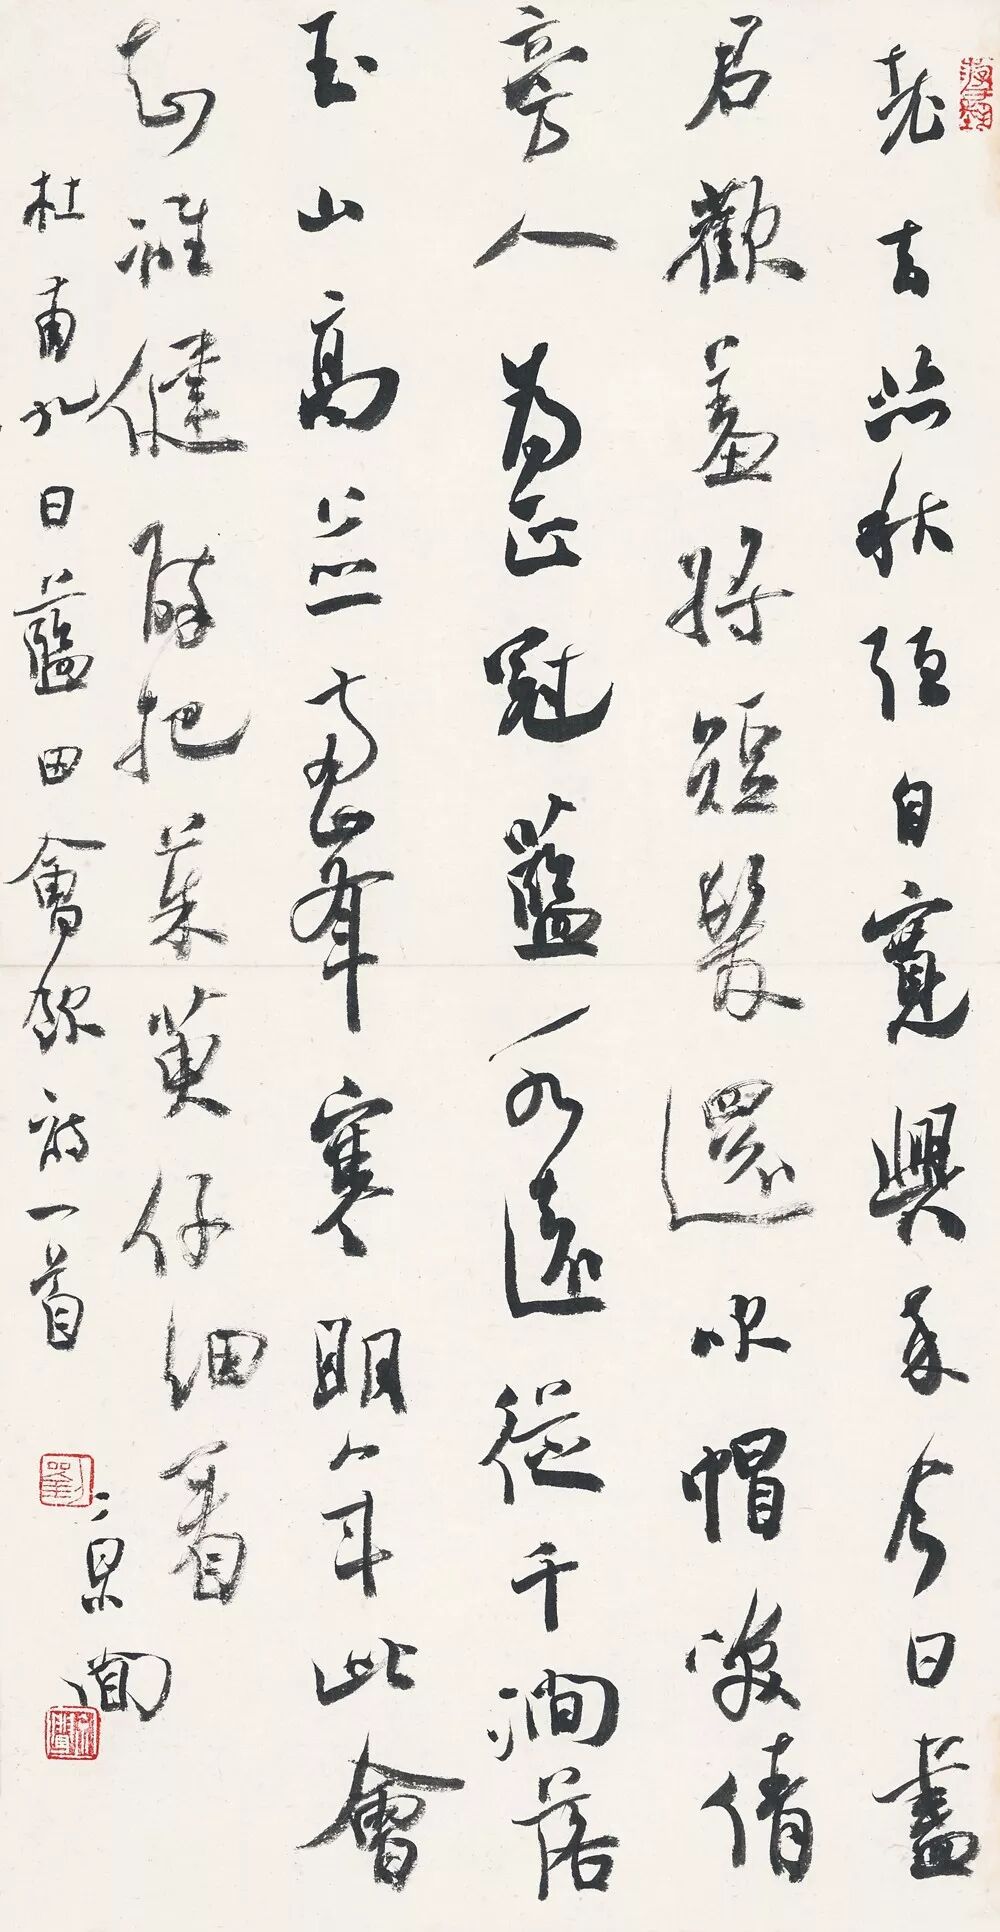 老去悲秋強自寬興來今日盡
君歡羞將短髮還吹帽笑倩
旁人為正冠藍水遠從千澗落
玉山高並兩峯寒明年此會
知誰健醉把茱萸仔細看
杜甫九日藍田會飲詩一首
京聞
劉